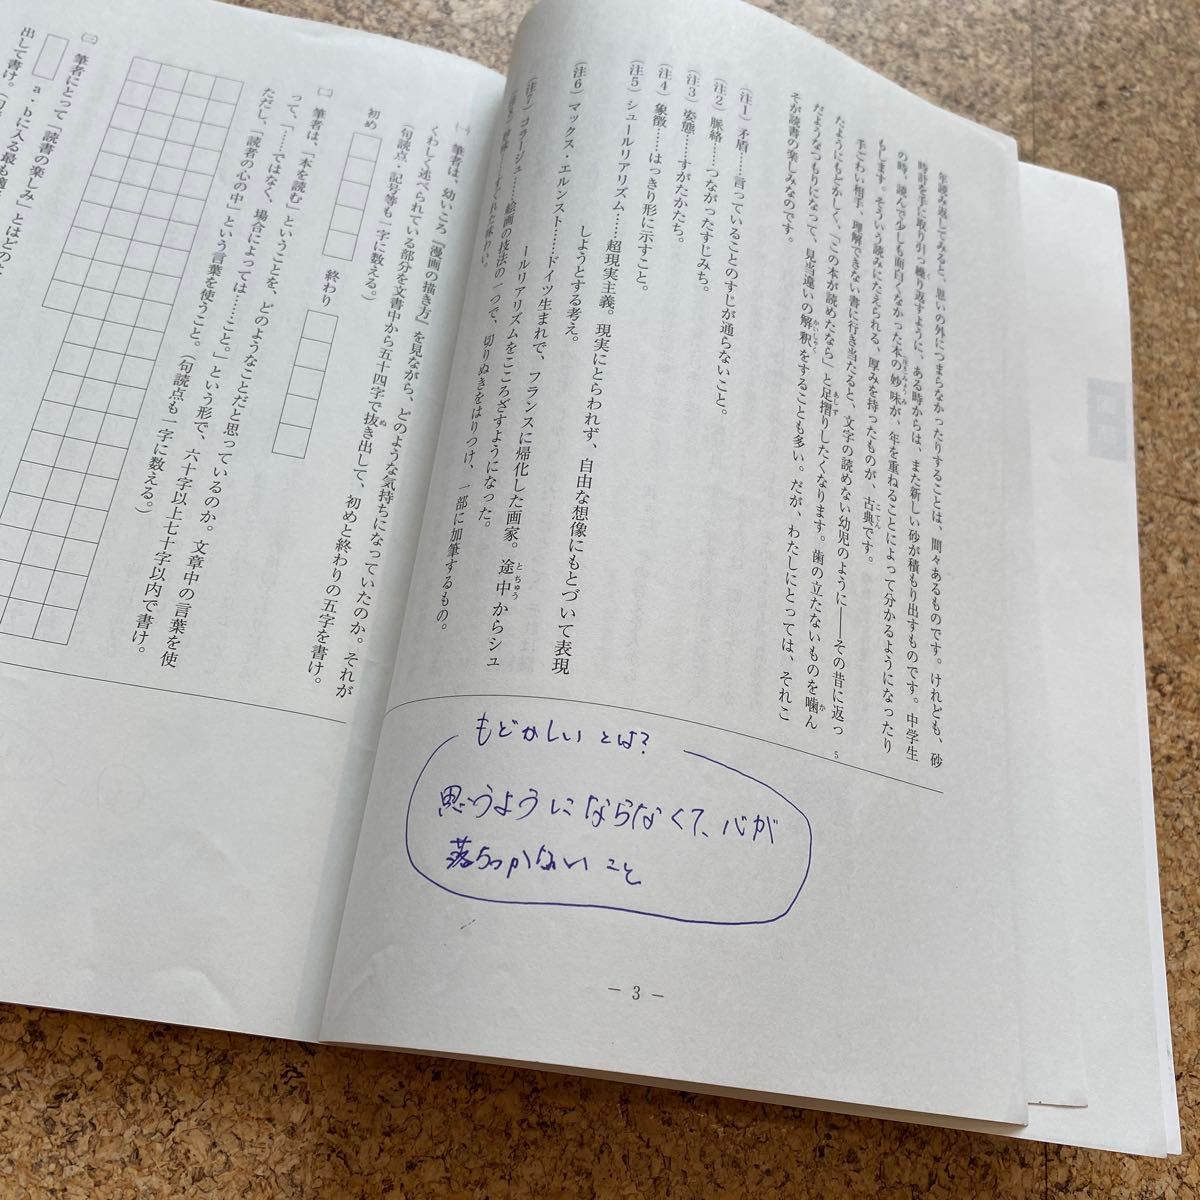 年読み返してみると、思いの外につまらなかったりすることは、間々あるものです。けれども、砂
時計を手に取り引っ繰り返すように、ある時からは、また新しい砂が積もり出すものです。中学生
の時、読んで少しも面白くなかった本の妙味が、年を重ねることによって分かるようになったり
もします。そういう読みにたえられる、厚みを持ったものが、古典です。
手ごわい相手、理解できない書に行き当たると、文字の読めない幼児のように――その昔に返っ
たようにもどかしく、「この本が読めたなら」と足摺りしたくなります。歯の立たないものを噛ん
だようなつもりになって、見当違いの解釈をすることも多い。だが、わたしにとっては、それこ
そが読書の楽しみなのです。
5
(注1) 矛盾……言っていることのすじが通らないこと。
(注2) 脈絡……つながったすじみち。
(注3) 姿態……すがたかたち。
(注4) 象徴……はっきり形に示すこと。
(注5) シュールリアリズム……超現実主義。現実にとらわれず、自由な想像にもとづいて表現
しようとする考え。
(注6) マックス・エルンスト……ドイツ生まれで、フランスに帰化した画家。途中からシュ
ールリアリズムをこころざすようになった。
(注7) コラージュ……絵画の技法の一つで、切りぬきをはりつけ、一部に加筆するもの。
すぐれた味わい。
もどかしいとは?
思うようにならなくて、心が
落ちつかないこと
— 3 —
(一) 筆者は、幼いころ「漫画の描き方」を見ながら、どのような気持ちになっていたのか。それが
くわしく述べられている部分を文書中から五十四字で抜き出して、初めと終わりの五字を書け。
(句読点・記号等も一字に数える。)
初め
終わり
(二) 筆者は、「本を読む」ということを、どのようなことだと思っているのか。文章中の言葉を使
って、「……ではなく、場合によっては……こと。」という形で、六十字以上七十字以内で書け。
ただし、「読者の心の中」という言葉を使うこと。(句読点も一字に数える。)
(三) 筆者にとって「読書の楽しみ」とはどのよ
a・bに入る最も適
出して書け。